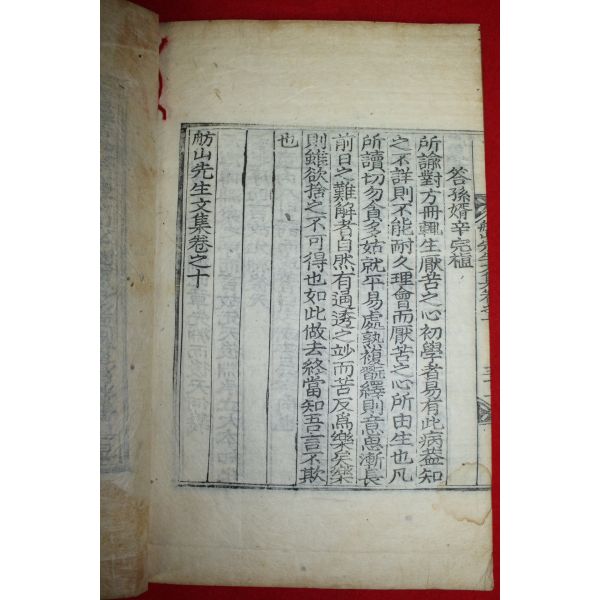 答孫婿辛宛植
所諭對方冊輒生厭苦之心初學者易有此病蓋知
之不詳則不能耐久理會而厭苦之心所由生也凡
所讀切勿貪多姑就平易處熟複翫繹則意思漸長
前日之難解者自然有通透之妙而苦反爲樂矣樂
則雖欲捨之不可得也如此做去終當知吾言不欺
也
舫山先生文集卷之十